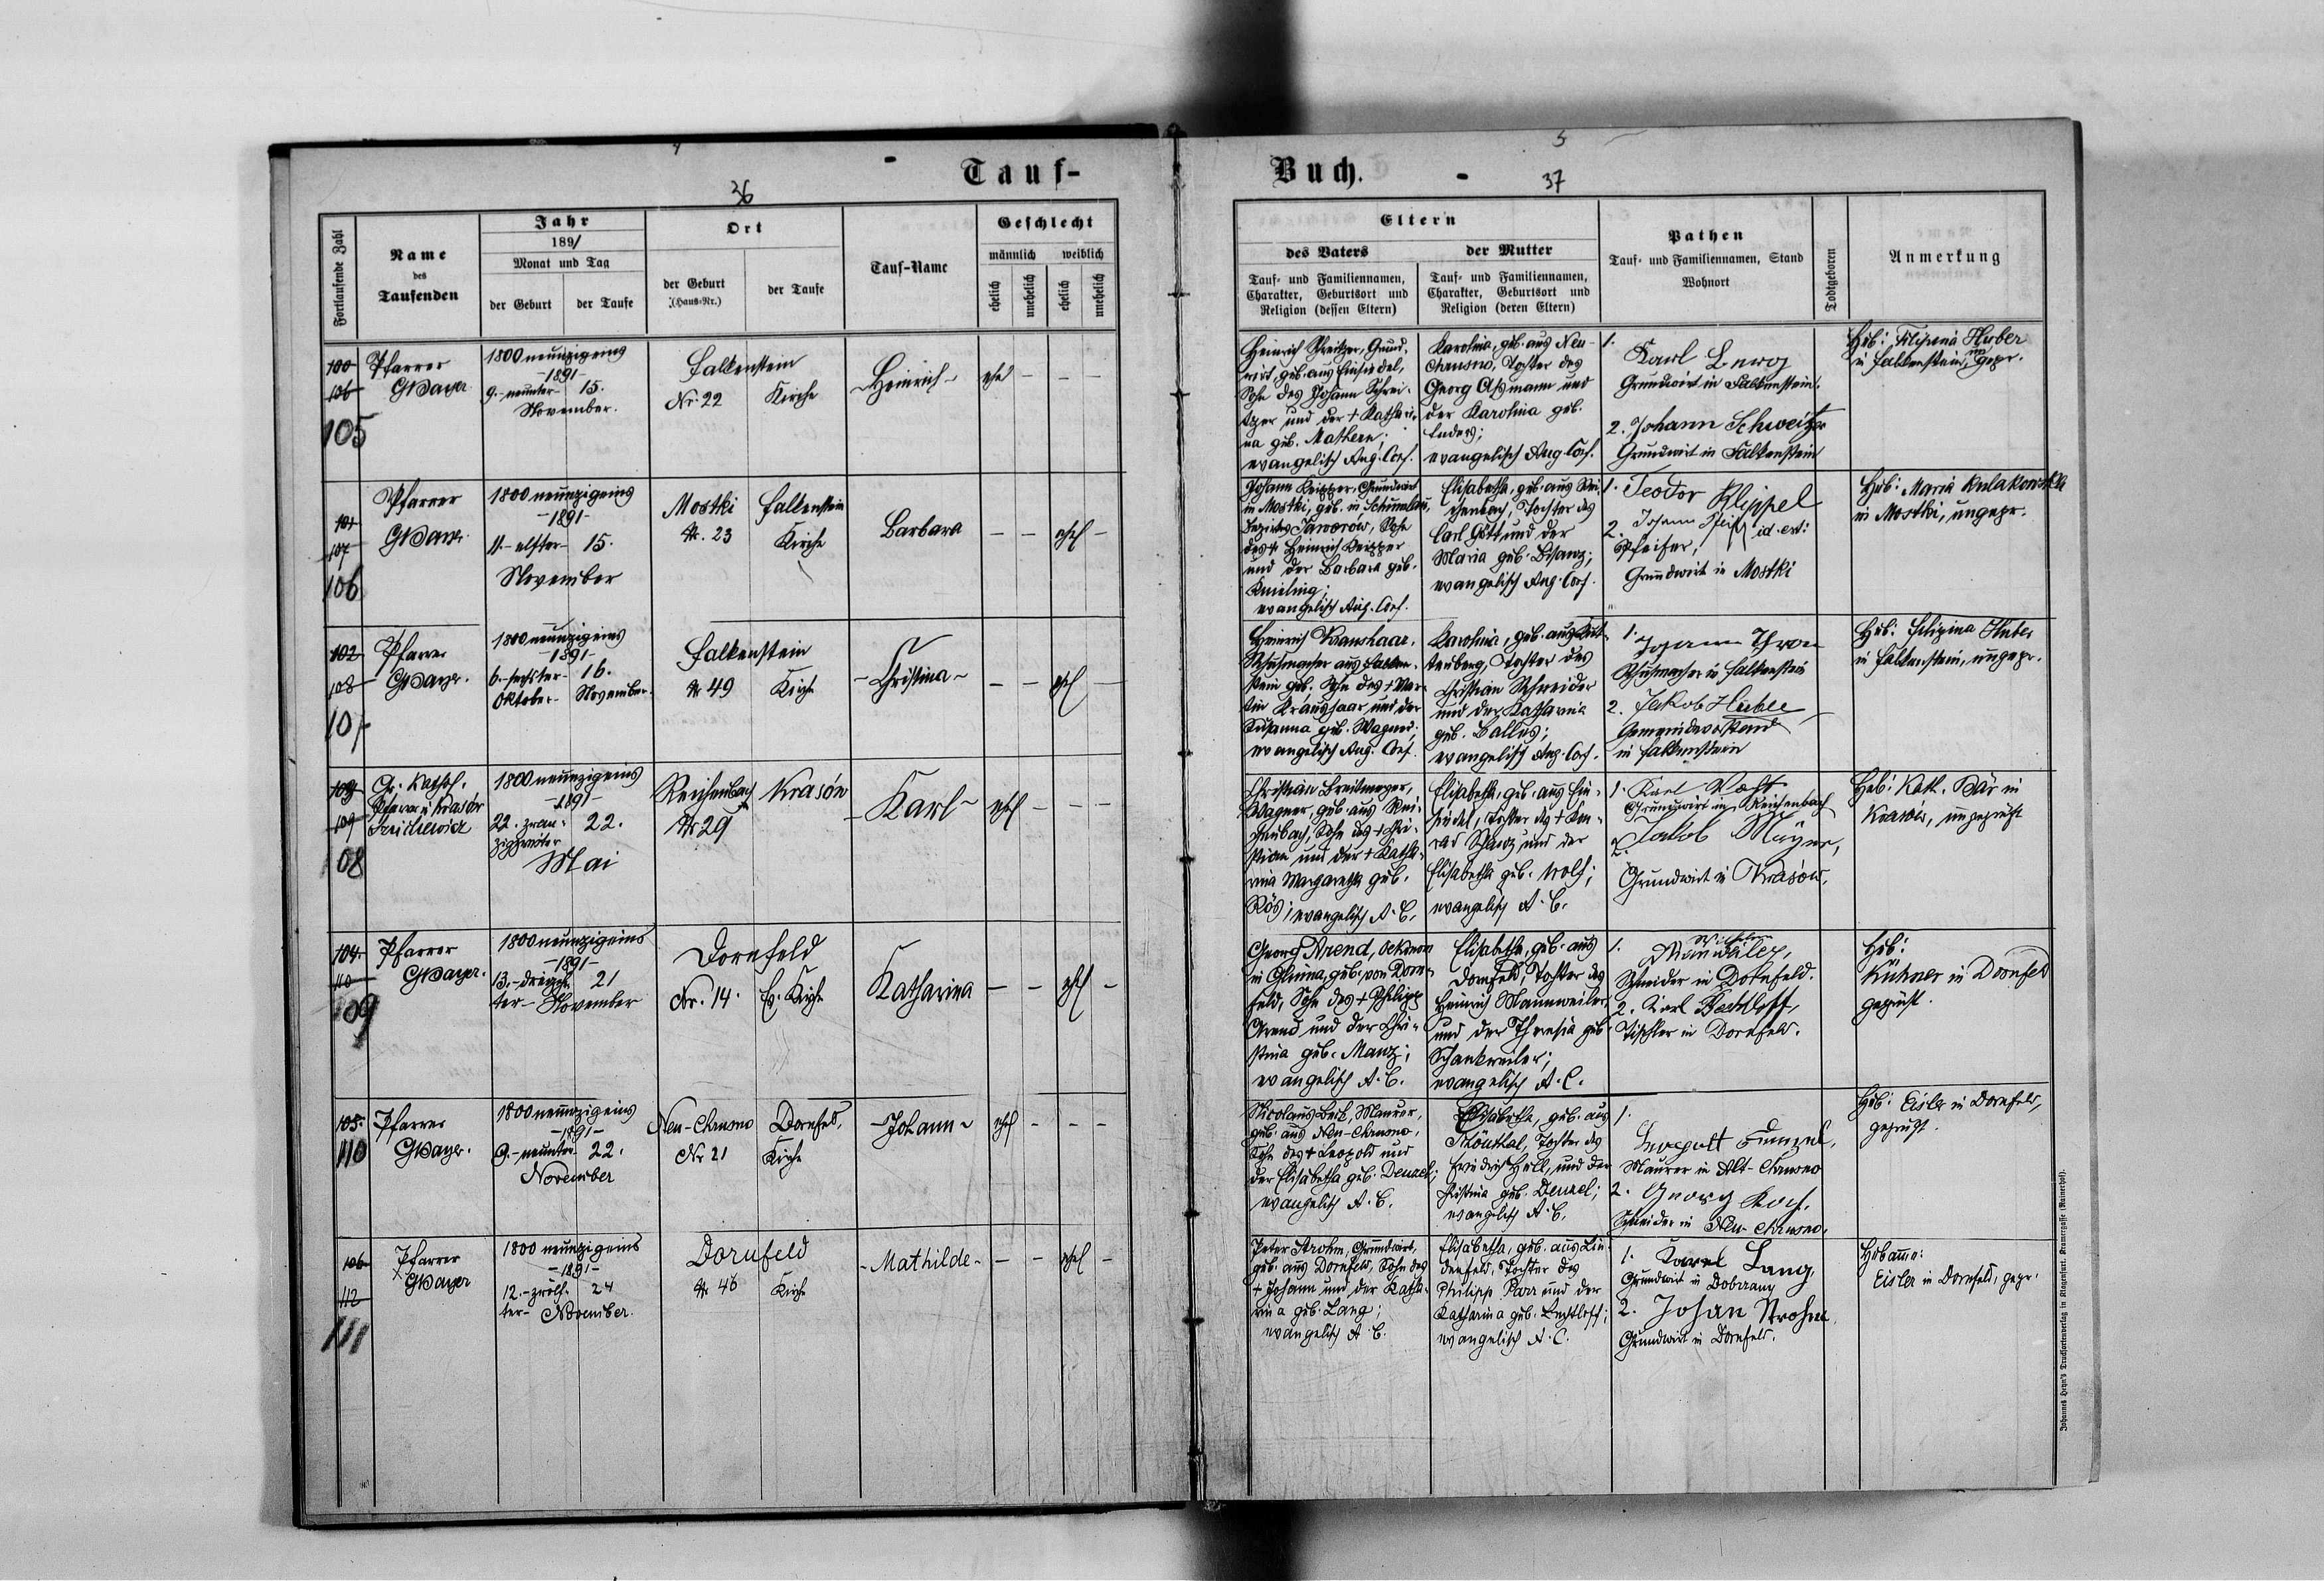 Tauf-
36
Fortlaufende Zahl
Name
des
Taufenden
Jahr
1891
Monat und Tag
der Geburt
der Taufe
Ort
der Geburt
(Haus-Nr.)
der Taufe
Tauf-Name
Geschlecht
männlich
weiblich
ehelich
unehelich
ehelich
unehelich
100
106
105
Pfarrer
GMayer
1800 neunzigeins
-1891-
9.-neunter- 15.
November.
Falkenstein
Nr. 22
Kirche
-Heinrich-
ehel
101
107
106
Pfarrer
GMayer
1800 neunzigeins
-1891-
11.-elfter- 15.
November
Mostki
Nr. 23
Falkenstein
Kirche
Barbara
ehel
102
108
107
Pfarrer
GMayer.
1800 neunzigeins
-1891-
6.-sechster- 16.
Oktober- November-
Falkenstein
Nr 49
Kirche
-Christina-
ehel
103
109
108
Gr. Kathol.
Pfarrer in Krasów
1800 neunzigeins
-1891-
22. zwan-
zigzweiter
22.
Mai
Reichenbach
Nr 29
Krasów
-Karl-
ehel
104
110
109
Pfarrer
GMayer.
1800 neunzigeins
-1891-
13.-dreizehn-
ter-
21
November
Dornfeld
Nr. 14.
Ev. Kirche
Katharina
ehel
105
110
Pfarrer
GMayer.
1800 neunzigeins
-1891-
9.-neunter- 22.
November
Neu-Chrusno
Nr 21
Dornfeld,
Kirche
-Johann-
ehel
106
112
111
Pfarrer
GMayer
1800 neunzigeins
-1891-
12.-zwölf-
ter-
24
November.
Dornfeld
Nr 46
Kirche
-Mathilde-
ehel
Buch.
37
Eltern
des Vaters
Tauf- und Familiennamen,
Charakter, Geburtsort und
Religion (dessen Eltern)
der Mutter
Tauf- und Familiennamen,
Charakter, Geburtsort und
Religion (deren Eltern)
Pathen
Tauf- und Familiennamen, Stand
Wohnort
Todtgeboren
Anmerkung
Heinrich Schreitzer, Grund-
wirt, geb. aus Einsiedel,
Sohn des Johann Schrei-
tzer und der + Kathari-
na geb. Mathern;
evangelisch Aug. Conf.
Karolina, geb. aus Neu-
Chrusno, Tochter des
Georg Aßmann und
der Karolina geb.
Enders;
evangelisch Aug. Conf.
1.
Karl
Grundwirt in Falkenstein.
2. Johann Schweitzer
Grundwirt in Falkenstein
Heb: Filipina Huber
in Falkenstein, ungepr.
Johann Keipper, Grundwirt
in Mostki, geb. in
Bezirkes Jaworów, Sohn
des + Heinrich Keipper
und der Barbara geb.
Kmieling;
evangelisch Aug. Conf.
Elisabetha, geb. aus Rei-
chenbach, Tochter des
Carl Gött und der
Maria geb. Bisanz;
evangelisch Aug. Conf.
1. Teodor Klippel
2. Johann
id. est:
Pfeifer,
Grundwirt in Mostki
Heb: Maria Kulakowska
in Mostki, ungepr.
Heinrich Kranshaar,
Schuhmacher aus Falken-
stein geb. Sohn des + Mar-
tin Kranshaar und der
Susanna geb. Wagner;
evangelisch Aug. Conf.
Karolina, geb. aus
tenberg, Tochter des
Christian Schneider
und der Katharina
geb. Ballus;
evangelisch Aug. Conf.
1.
Johann Thron
Schuhmacher in Falkenstein
2. Jakob Huber
Gemeindevorstand
in Falkenstein
Heb: Filipina Huber
in Falkenstein, ungepr.
Christian Breitmayer,
Wagner, geb. aus Rei-
chenbach, Sohn des + Chri-
stian und der + Katha-
rina Margaretha geb.
Rös; evangelisch A. C.
Elisabetha, geb. aus Ein-
siedel, Tochter des + Kon-
rad Scharz und der
Elisabetha geb. Wolf;
evangelisch A. C.
1. Karl
Grundwirt in Reichenbach
2. Jakob Mayer,
Grundwirt in Krasów.
Heb: Kath. Bär in
Krasów, ungeprüft
Georg Arend, Oekonom
in Glinna, geb. von Dorn-
feld, Sohn des + Philipp
Arend und der Chri-
stina geb. Manz;
evangelisch A. C.
Elisabetha, geb. aus
Dornfeld, Tochter des
Heinrich Mannweiler
und der Theresia geb.
Schankweiler;
evangelisch A. C.
1. Wilhelm
Manweiler,
Schneider in Dornfeld.
2. Karl Bechtloff,
Tischler in Dornfeld.
Heb:
Kühner in Dornfeld
geprüft.
Nicolaus Beck, Maurer,
geb. aus Neu-Chrusno,
Sohn des + Leopold und
der Elisabetha geb. Denzel;
evangelisch A. C.
Elisabetha, geb. aus
Schönthal, Tochter des
Friedrich Hell, und der
Christina geb. Denzel;
evangelisch A. C.
1.
Maurer in Alt-Chrusno
2. Georg Koch,
Schneider in Neu-Chrusno.
Heb: Eisler in Dornfeld,
geprüft.
Peter Strohm, Grundwirt,
geb. aus Dornfeld, Sohn des
+ Johann und der Katha-
rina geb. Lang;
evangelisch A. C.
Elisabetha, geb. aus Lin-
denfeld, Tochter des
Philipp Parr und der
Katharina geb. Bechtloff;
evangelisch A. C.
1. Karl Lang,
Grundwirt in Dobrzany
2. Johan Strohm,
Grundwirt in Dornfeld.
Hebamme:
Eisler in Dornfeld, gepr.
Johannes Heyn's Drucksortenverlag in Klagenfurt. Kramergasse (Rainerhof).